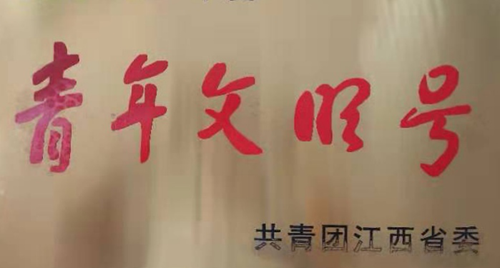 青年文明号
共青团江西省委